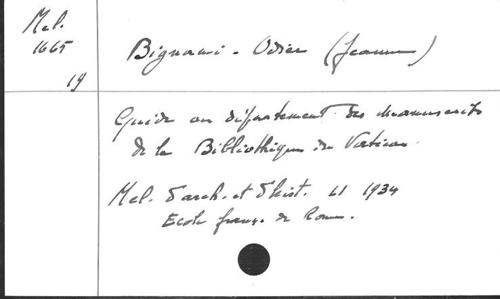 Mel.
1665
19
Bignami-Odier (Jeanne)
Guide au département des manuscrits
de la Bibliothèque du Vatican
Mel. d'arch. et d'hist. 51 1934
Ecole franç. de Rome.